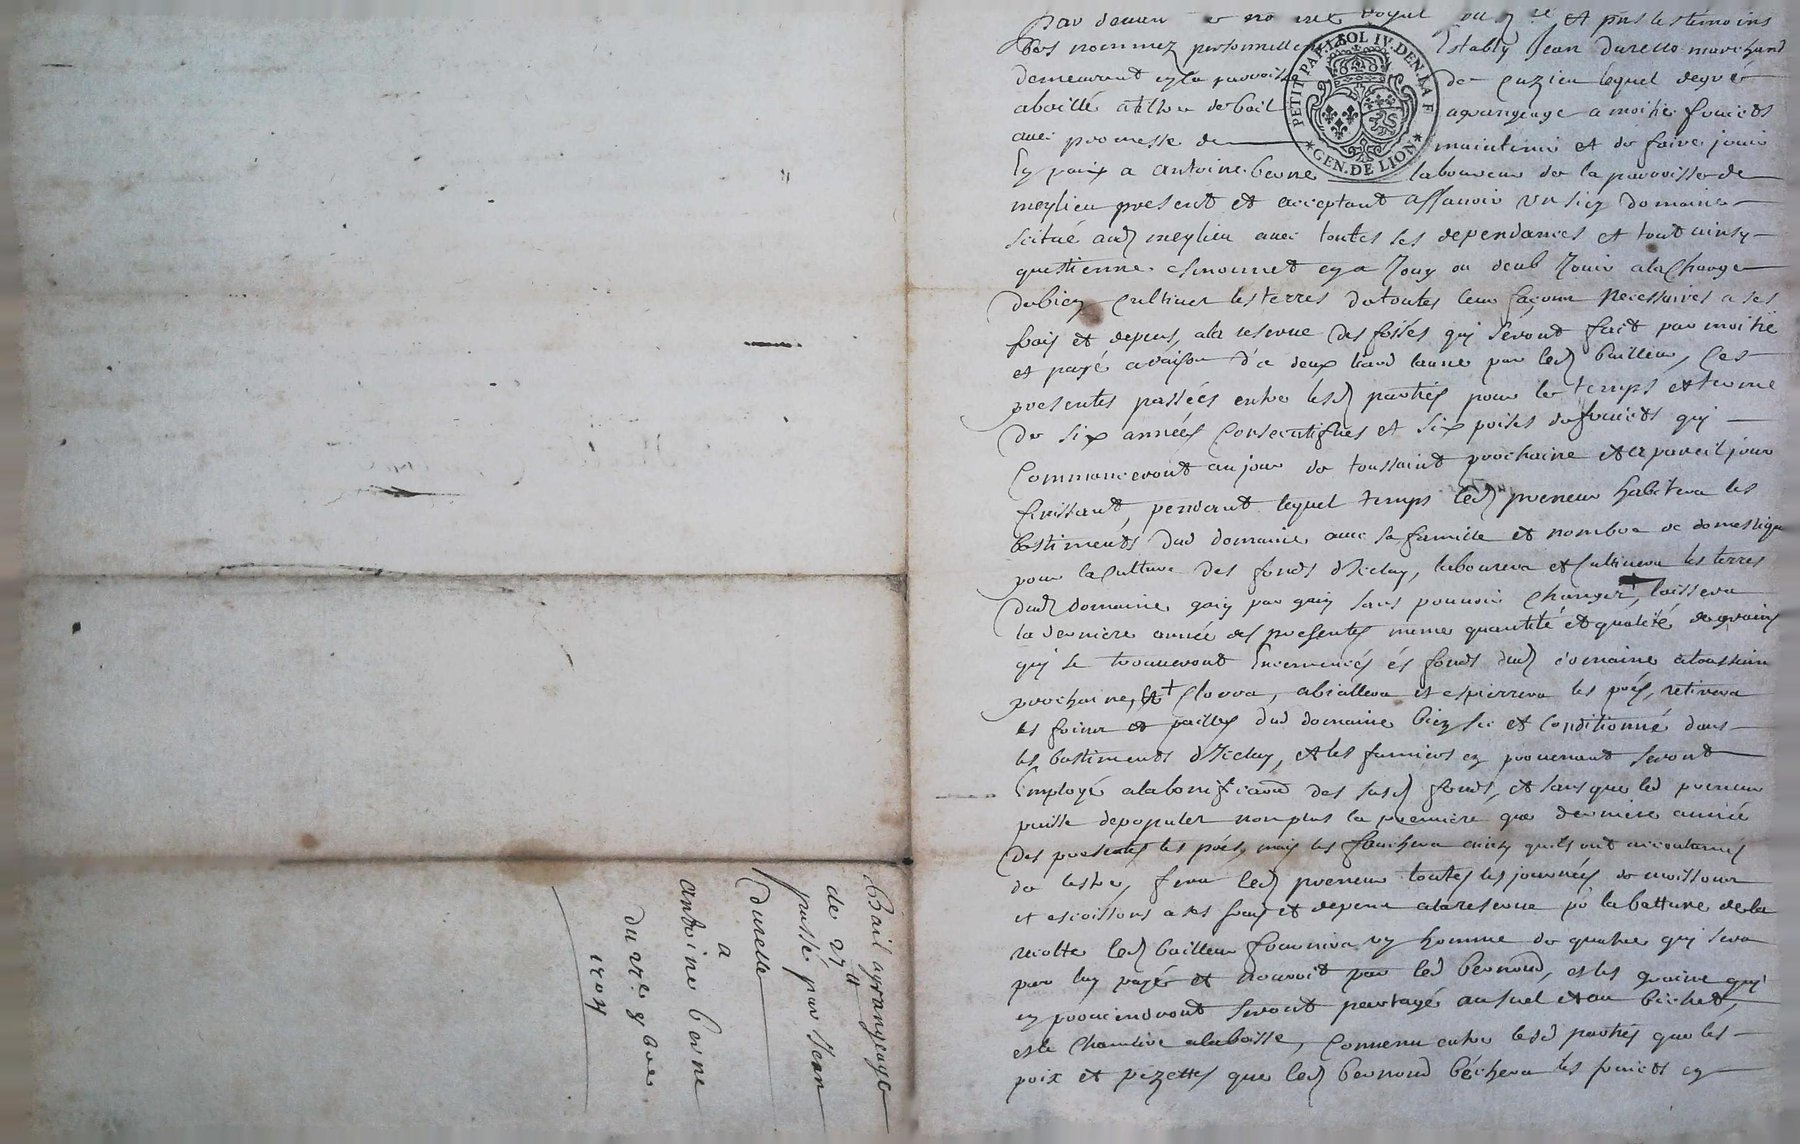 Par devant le no re royal et puis les témoins
bas nommez personnellement Estably Jean durelle marchand
demeurant en la parroisse de Cuzieu lequel degré
a baillé à tiltre de bail agrangeage a moitié fruicts
avec promesse de maintenir et de faire jouir
En paix a antoine berne laboureur de la parroisse de
meylieu present et acceptant assavoir un sien domaine
scitué aud meylieu avec toutes ses dependances et tout ainsy
questienne en a Jouy ou deub Jouir a la Charge
de bien Cultiver les terres de toutes leur façons Necessaires a ses
frais et depens, a la reserve des fossés qui seront fait par moitié
et payé a raison de deux liard laune par led bailleur, Ces
presentes passées entre lesd parties pour le temps et terme
de six années Consecutifves et six prises de fruicts qui
Commanceront au jour de toussaint prochaine et a pareil jour
finissant, pendant lequel temps led preneur habitera les
bastiments dud domaine avec sa famille et nombre de domestique
pour la Culture des fonds d'Iceluy, labourera et Cultivera les terres
dud domaine gain par gain sans pouvoir changer, laissera
la derniere année des presentes meme quantité et qualité de grains
qui se trouveront Encemencés és fonds dud domaine a toussain
prochaine, et Clorra, abiallera et espierrera les prés, retirera
les foins et pailles dud domaine bien sec et Conditionné dans
les bastiments d'Iceluy, et les fumiers en provenant seront
Employé a la bonification des susd fonds, et sans que led preneur
puisse depopuler non plus la premiere que derniere année
des presentes les prés, mais les fauchera ainsy quils ont accoutumés
de lestre, fera led preneur toutes les journées de moissons
et escoissons a ses frais et depens a la reserve pr la batture de la
recolte led bailleur fournira un homme de quatre qui sera
par luy payé et nourrit par led bernoud, et les graine qui
en proviendront seront partagé au suel et au bichet,
et le Chanvre a la boisse, Convenu entre lesd parties que les
poix et pezettes que led bernoud béchera les fruicts en
Bail agrangeage
de
passé par Jean
durelle
a
antoine berne
Du 8bre
1707
PETIT PAP. 1 SOL IV. DEN. LA F
GEN. DE LION